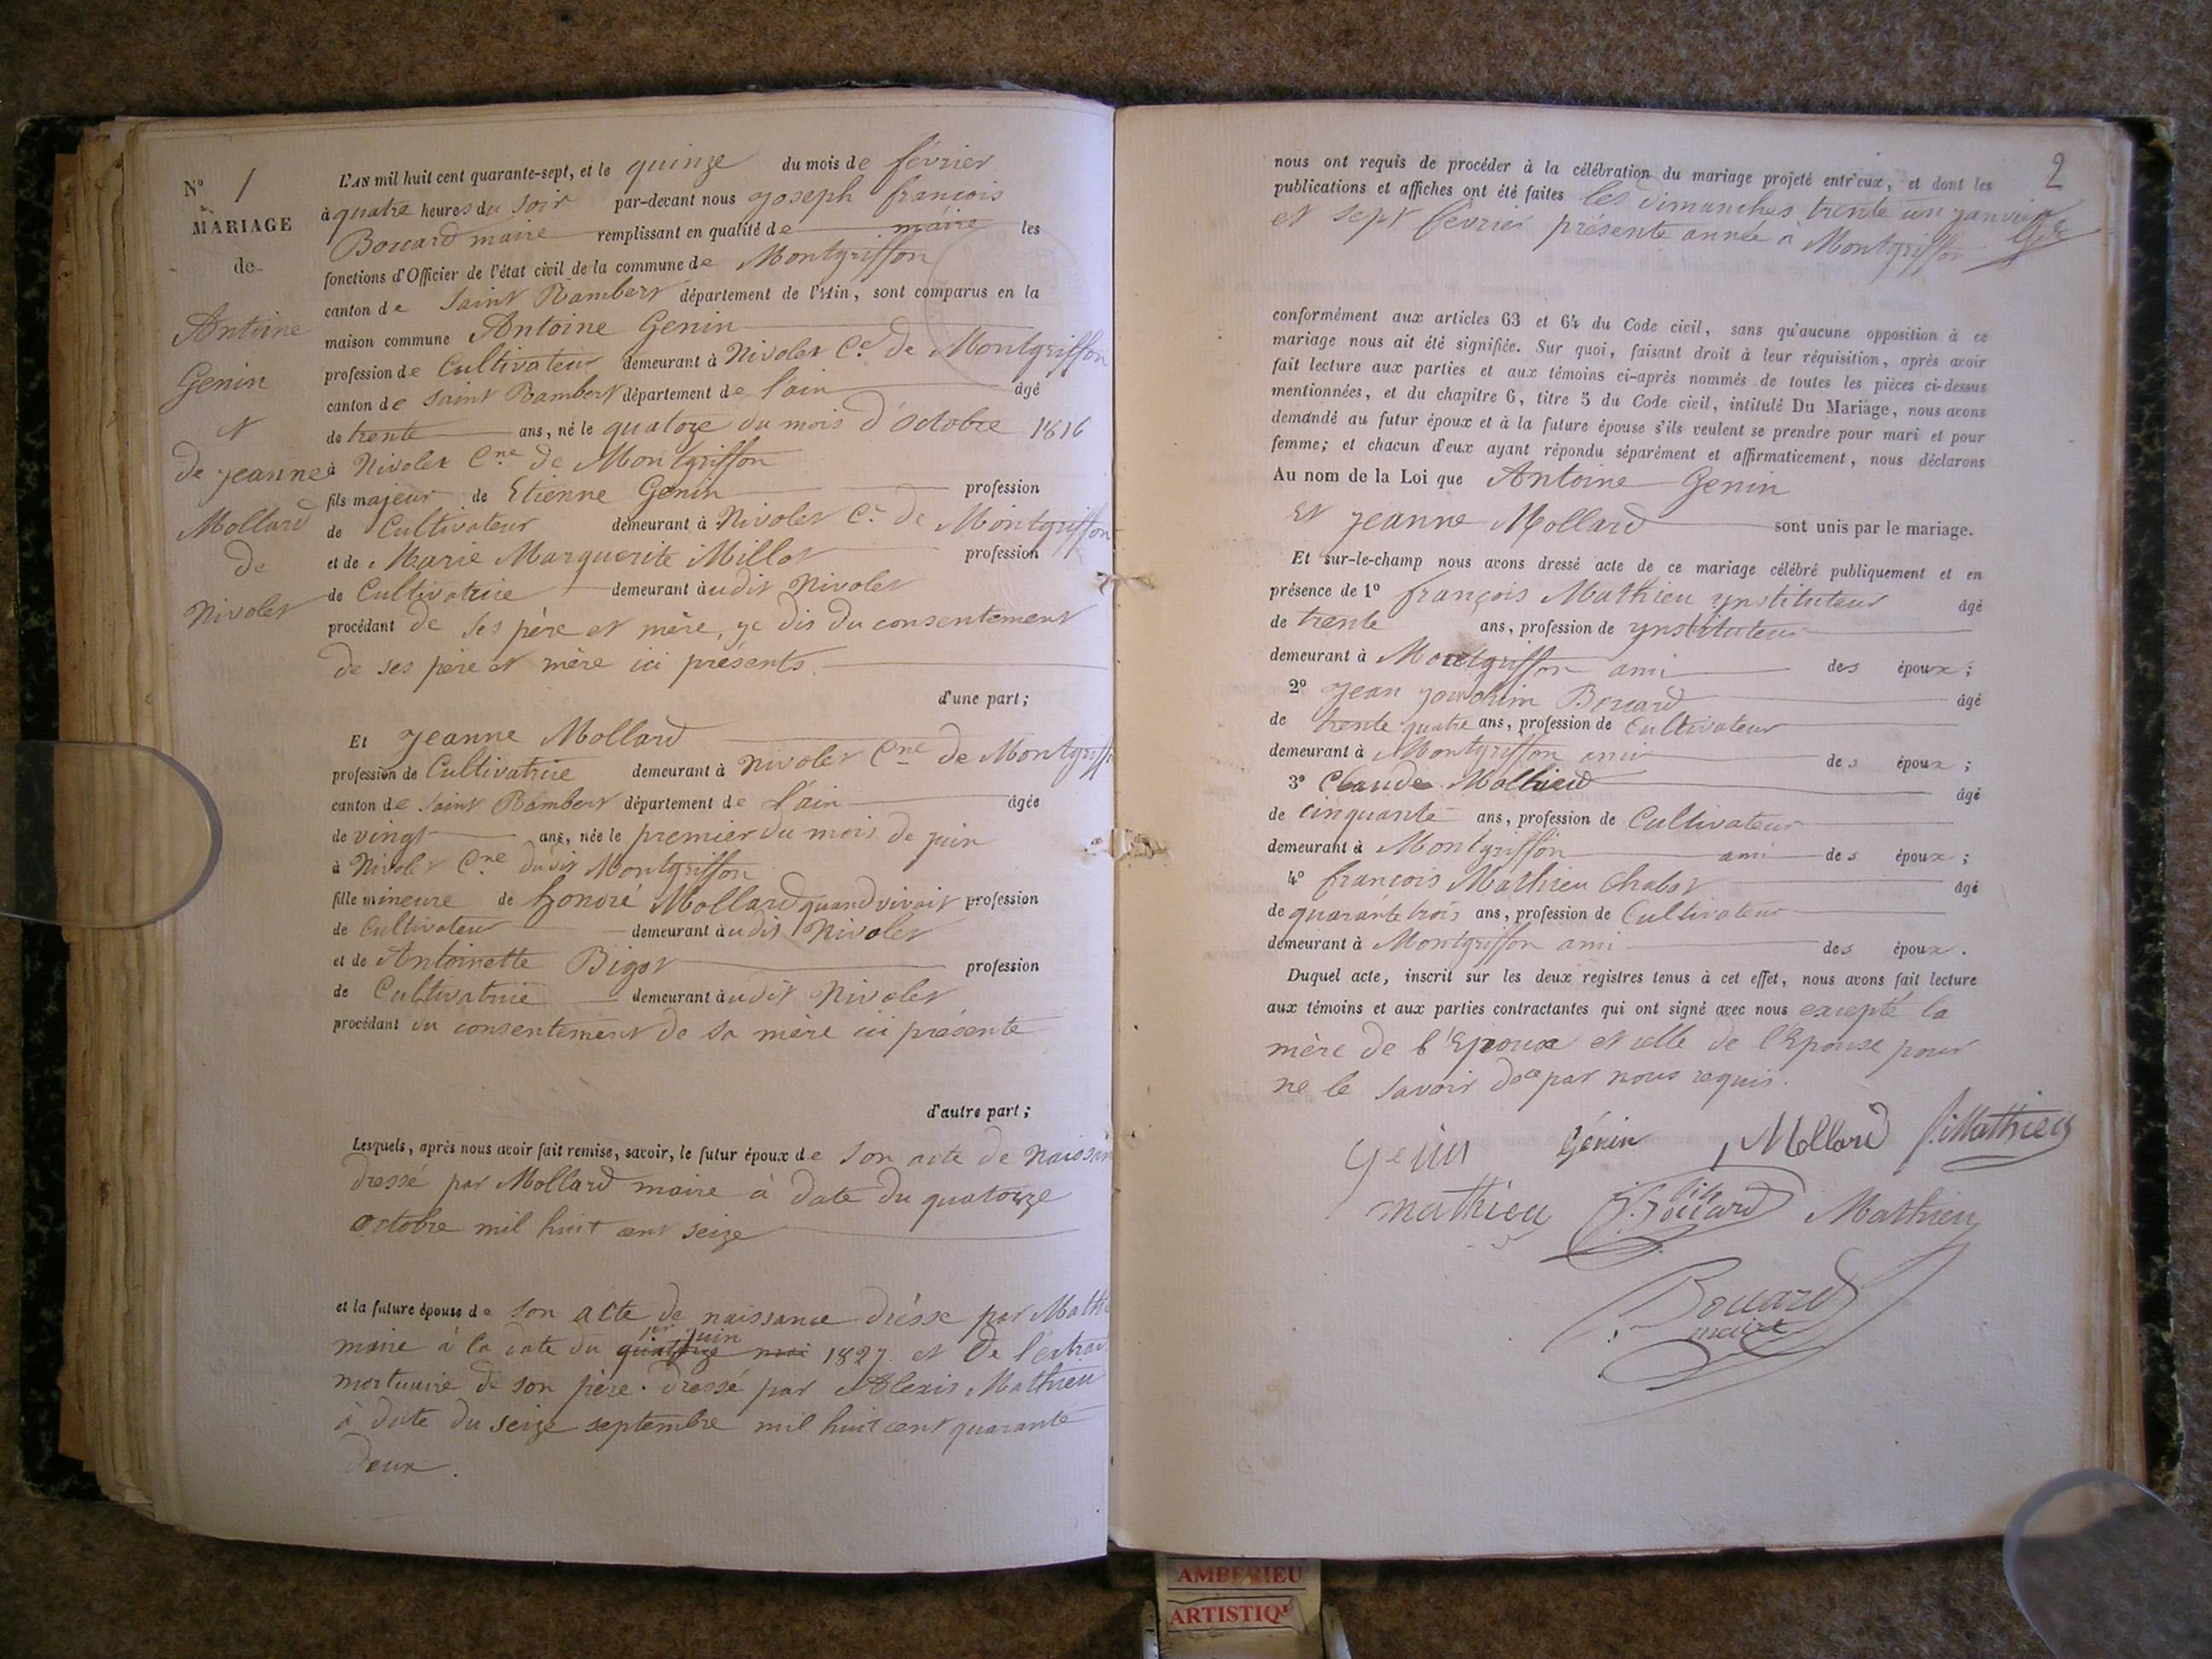 N° 1
MARIAGE
de
Antoine
Genin
et
de jeanne
Mollard
de
Nivolet
L'AN mil huit cent quarante-sept, et le quinze du mois de février
à quatre heures du soir par-devant nous joseph françois
Bouard maire remplissant en qualité de maire les
fonctions d'Officier de l'état civil de la commune de Montgriffon
canton de Saint Rambert département de l'Ain, sont comparus en la
maison commune Antoine Genin
profession de Cultivateur demeurant à Nivolet Ce. de Montgriffon
canton de Saint Rambert département de l'ain âgé
de trente ans, né le quatoze du mois d'octobre 1816
à Nivolet Cne de Montgriffon
fils majeur de Etienne Genin profession
de Cultivateur demeurant à Nivolet Ce de Montgriffon
et de Marie Marguerite Millot profession
de Cultivatrice demeurant àudit Nivolet
procédant de ses père et mère, je dis du consentement
de ses père et mère ici présents
d'une part;
Et jeanne Mollard
profession de Cultivatrice demeurant à Nivolet Cne de Montgriff
canton de Saint Rambert département de l'ain âgée
de vingt ans, née le premier du mois de juin
à Nivolet Cne dudit Montgriffon
fille mineure de honoré Mollard quand vivait profession
de Cultivateur demeurant àudit Nivolet
et de Antoinette Bigot profession
de Cultivatrice demeurant àudit Nivolet
procédant du consentement de sa mère ici présente
d'autre part;
Lesquels, après nous avoir fait remise, savoir, le futur époux de son acte de naissan
dressé par Mollard maire à date du quatorze
octobre mil huit cent seize
et la future épouse de son acte de naissance dressé par Math
maire à la date du 1er juin 1827 et de l'extrai
mortuaire de son père dressé par Alexis Mathieu
à date du seize septembre mil huit cent quarante
deux.
2
nous ont requis de procéder à la célébration du mariage projeté entr'eux, et dont les
publications et affiches ont été faites les dimanches trente un janvier
et sept février présente année à Montgriffon
conformément aux articles 63 et 64 du Code civil, sans qu'aucune opposition à ce
mariage nous ait été signifiée. Sur quoi, faisant droit à leur réquisition, après avoir
fait lecture aux parties et aux témoins ci-après nommés de toutes les pièces ci-dessus
mentionnées, et du chapitre 6, titre 5 du Code civil, intitulé Du Mariage, nous avons
demandé au futur époux et à la future épouse s'ils veulent se prendre pour mari et pour
femme; et chacun d'eux ayant répondu séparément et affirmativement, nous déclarons
Au nom de la Loi que Antoine Genin
Et jeanne Mollard sont unis par le mariage.
Et sur-le-champ nous avons dressé acte de ce mariage célébré publiquement et en
présence de 1° françois Mathieu ynstituteur âgé
de trente ans, profession de ynstituteur
demeurant à Montgriffon ami des époux;
2° jean Bouard âgé
de trente quatre ans, profession de Cultivateur
demeurant à Montgriffon ami des époux;
3° Claude Mathieu âgé
de cinquante ans, profession de Cultivateur
demeurant à Montgriffon ami des époux;
4° françois Mathieu Chabot âgé
de quarante trois ans, profession de Cultivateur
demeurant à Montgriffon ami des époux.
Duquel acte, inscrit sur les deux registres tenus à cet effet, nous avons fait lecture
aux témoins et aux parties contractantes qui ont signé avec nous excepté la
mère de l'Epoux et celle de l'Epouse pour
ne le savoir de ce par nous requis.
genin Génin Mollard f. Mathieu
mathieu J. Bouard Mathieu
Bouard
maire
AMBERIEU
ARTISTIQ